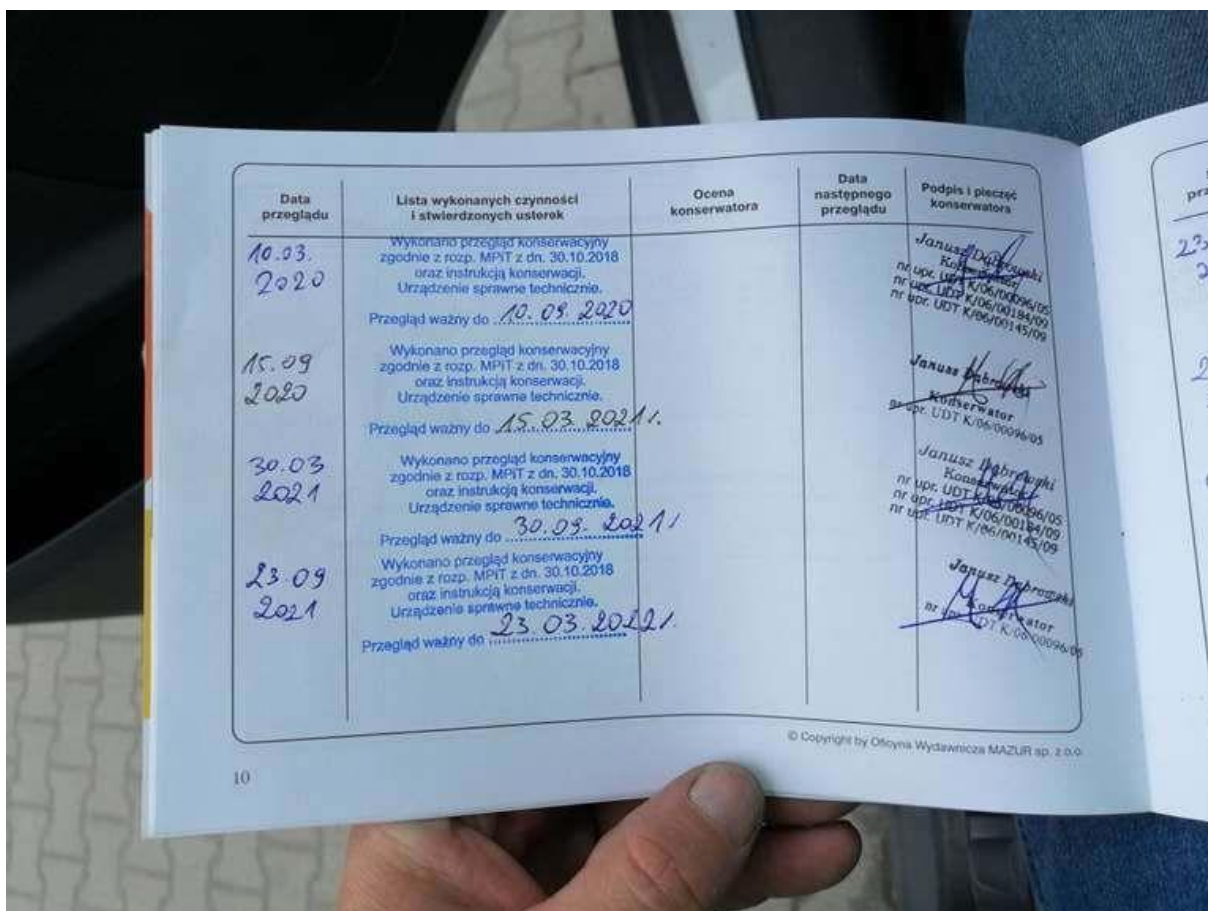 Data
przeglądu
Lista wykonanych czynności
i stwierdzonych usterek
Ocena
konserwatora
Data
następnego
przeglądu
Podpis i pieczęć
konserwatora
10.03.
2020
Wykonano przegląd konserwacyjny
zgodnie z rozp. MPiT z dn. 30.10.2018
oraz instrukcją konserwacji.
Urządzenie sprawne technicznie.
Przegląd ważny do 10.09.2020
Janusz Dąbrowski
Konserwator
nr upr. UDT K/06/00096/05
nr upr. UDT K/06/00184/09
nr upr. UDT K/06/00145/09
15.09
2020
Wykonano przegląd konserwacyjny
zgodnie z rozp. MPiT z dn. 30.10.2018
oraz instrukcją konserwacji.
Urządzenie sprawne technicznie.
Przegląd ważny do 15.03.2021r.
Janusz Dąbrowski
Konserwator
nr upr. UDT K/06/00096/05
30.03
2021
Wykonano przegląd konserwacyjny
zgodnie z rozp. MPiT z dn. 30.10.2018
oraz instrukcją konserwacji.
Urządzenie sprawne technicznie.
Przegląd ważny do 30.09.2021r
Janusz Dąbrowski
Konserwator
nr upr. UDT K/06/00096/05
nr upr. UDT K/06/00184/09
nr upr. UDT K/06/00145/09
23.09
2021
Wykonano przegląd konserwacyjny
zgodnie z rozp. MPiT z dn. 30.10.2018
oraz instrukcją konserwacji.
Urządzenie sprawne technicznie.
Przegląd ważny do 23.03.2022r.
Janusz Dąbrowski
Konserwator
nr upr. UDT K/06/00096/05
© Copyright by Oficyna Wydawnicza MAZUR sp. z o.o.
10